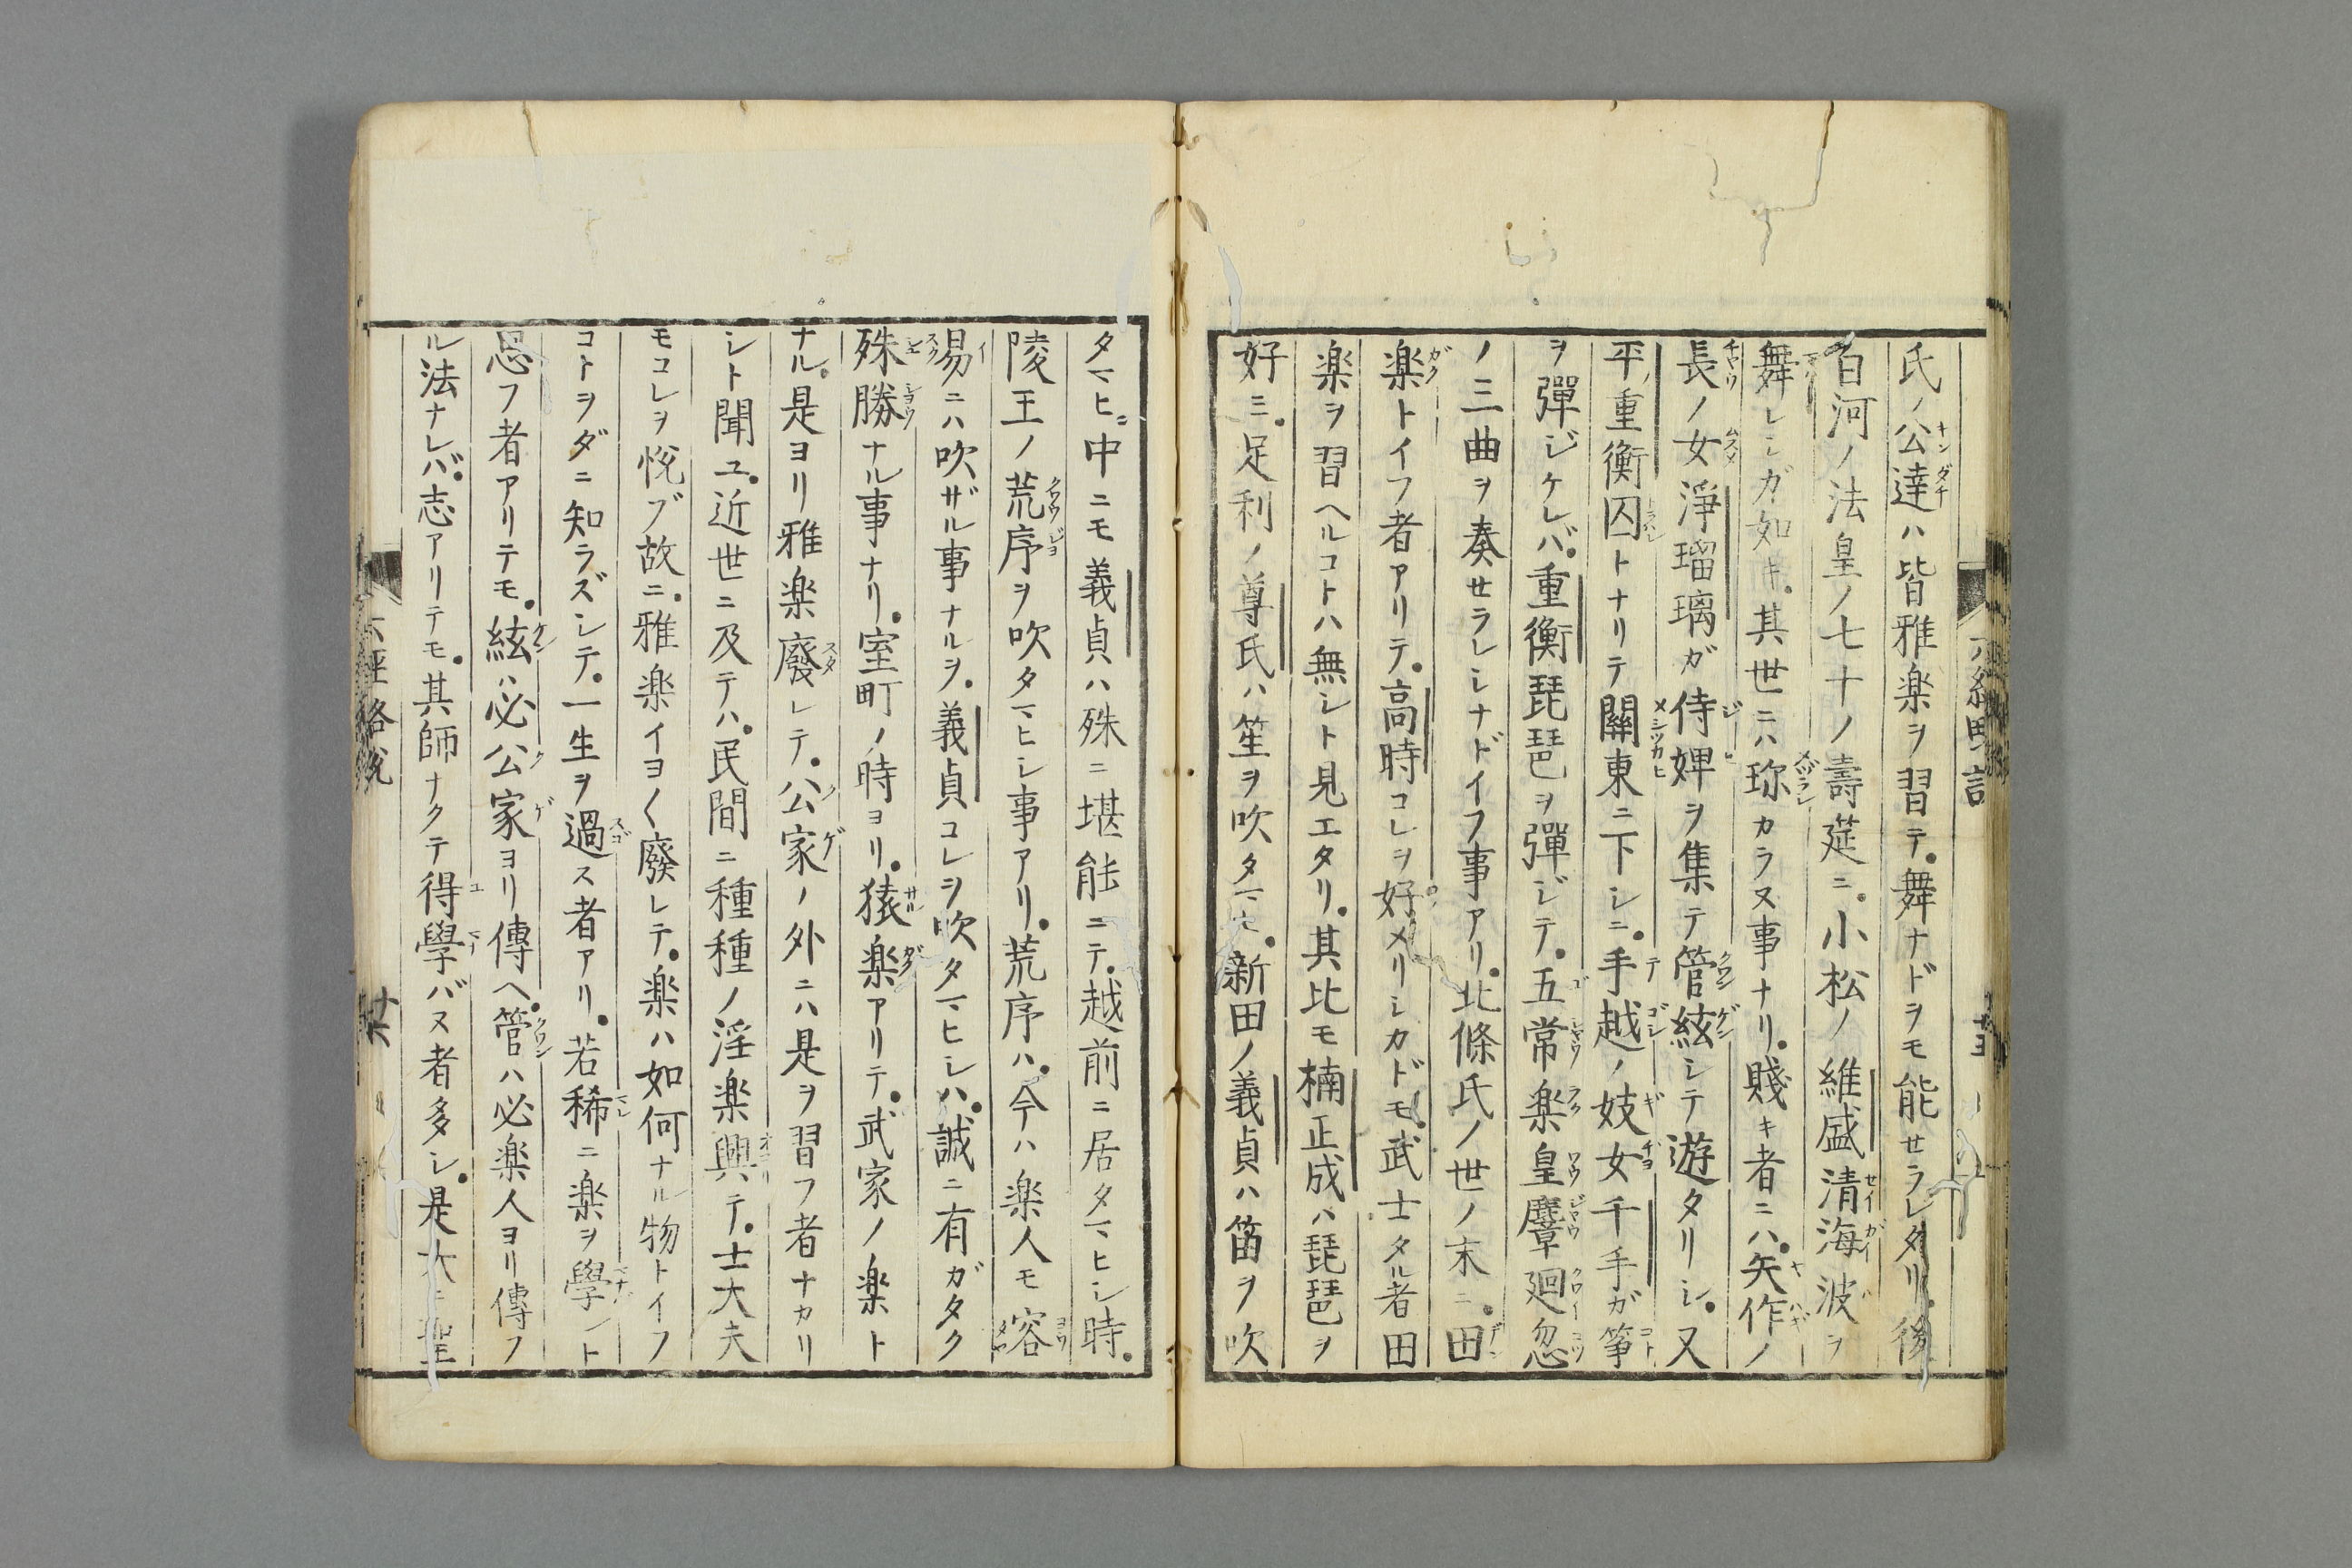 氏ノ公達ハ皆雅楽ヲ習テ。舞ナドヲモ能セラレタリ。後
白河ノ法皇ノ七十ノ壽莚ニ。小松ノ維盛清海波ヲ
舞レシガ如キ。其世ニハ珎カラヌ事ナリ。賤キ者ニハ。矢作ノ
長ノ女淨瑠璃ガ侍婢ヲ集テ管絃シテ遊タリシ。又
平ノ重衡囚トナリテ關東ニ下シニ。手越ノ妓女千手ガ箏
ヲ彈ジケレバ。重衡琵琶ヲ彈ジテ。五常楽皇麞廻忽
ノ三曲ヲ奏セラレシナドイフ事アリ。北條氏ノ世ノ末ニ。田
楽トイフ者アリテ。高時コレヲ好メリシカドモ。武士タル者田
楽ヲ習ヘルコトハ無シト見エタリ。其比モ楠正成ハ琵琶ヲ
好ミ。足利ノ尊氏ハ笙ヲ吹タマヒ。新田ノ義貞ハ笛ヲ吹
タマヒ。中ニモ義貞ハ殊ニ堪能ニテ。越前ニ居タマヒシ時。
陵王ノ荒序ヲ吹タマヒシ事アリ。荒序ハ。今ハ楽人モ容
易ニハ吹ザル事ナルヲ。義貞コレヲ吹タマヒシハ。誠ニ有ガタク
殊勝ナル事ナリ。室町ノ時ヨリ。猿楽アリテ。武家ノ楽ト
ナル。是ヨリ雅楽廢レテ。公家ノ外ニハ是ヲ習フ者ナカリ
シト聞ユ。近世ニ及テハ。民間ニ種種ノ淫楽興テ。士大夫
モコレヲ悦ブ故ニ。雅楽イヨ〱廢レテ。楽ハ如何ナル物トイフ
コトヲダニ知ラズシテ。一生ヲ過ス者アリ。若稀ニ楽ヲ學ント
思フ者アリテモ。絃ハ必公家ヨリ傳ヘ。管ハ必楽人ヨリ傳フ
ル法ナレバ。志アリテモ。其師ナクテ得學バヌ者多シ。是大ニ聖
六經略說
十六